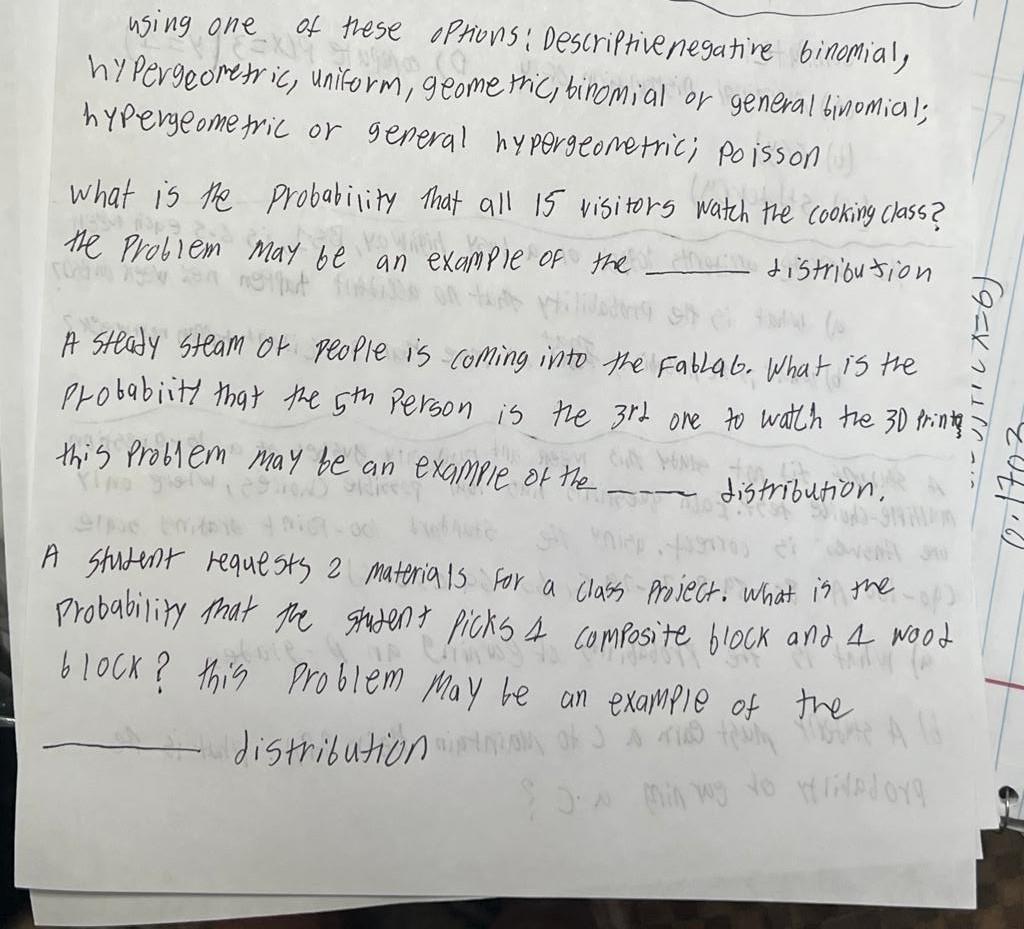 using one of these options: Descriptive negative binomial,
hypergeometric, uniform, geometric, binomial or general binomial;
hypergeometric or general hypergeometric; poisson
What is the probability that all 15 visitors watch the cooking class?
the Problem may be an example of the ______ distribution
A steady steam of people is coming into the FabLab. What is the
Probabiity that the 5th Person is the 3rd one to watch the 3D Printing
this Problem may be an example of the ______ distribution.
A student requests 2 materials for a class project. What is the
Probability that the student picks 1 composite block and 1 wood
block? this Problem may be an example of the
______ distribution